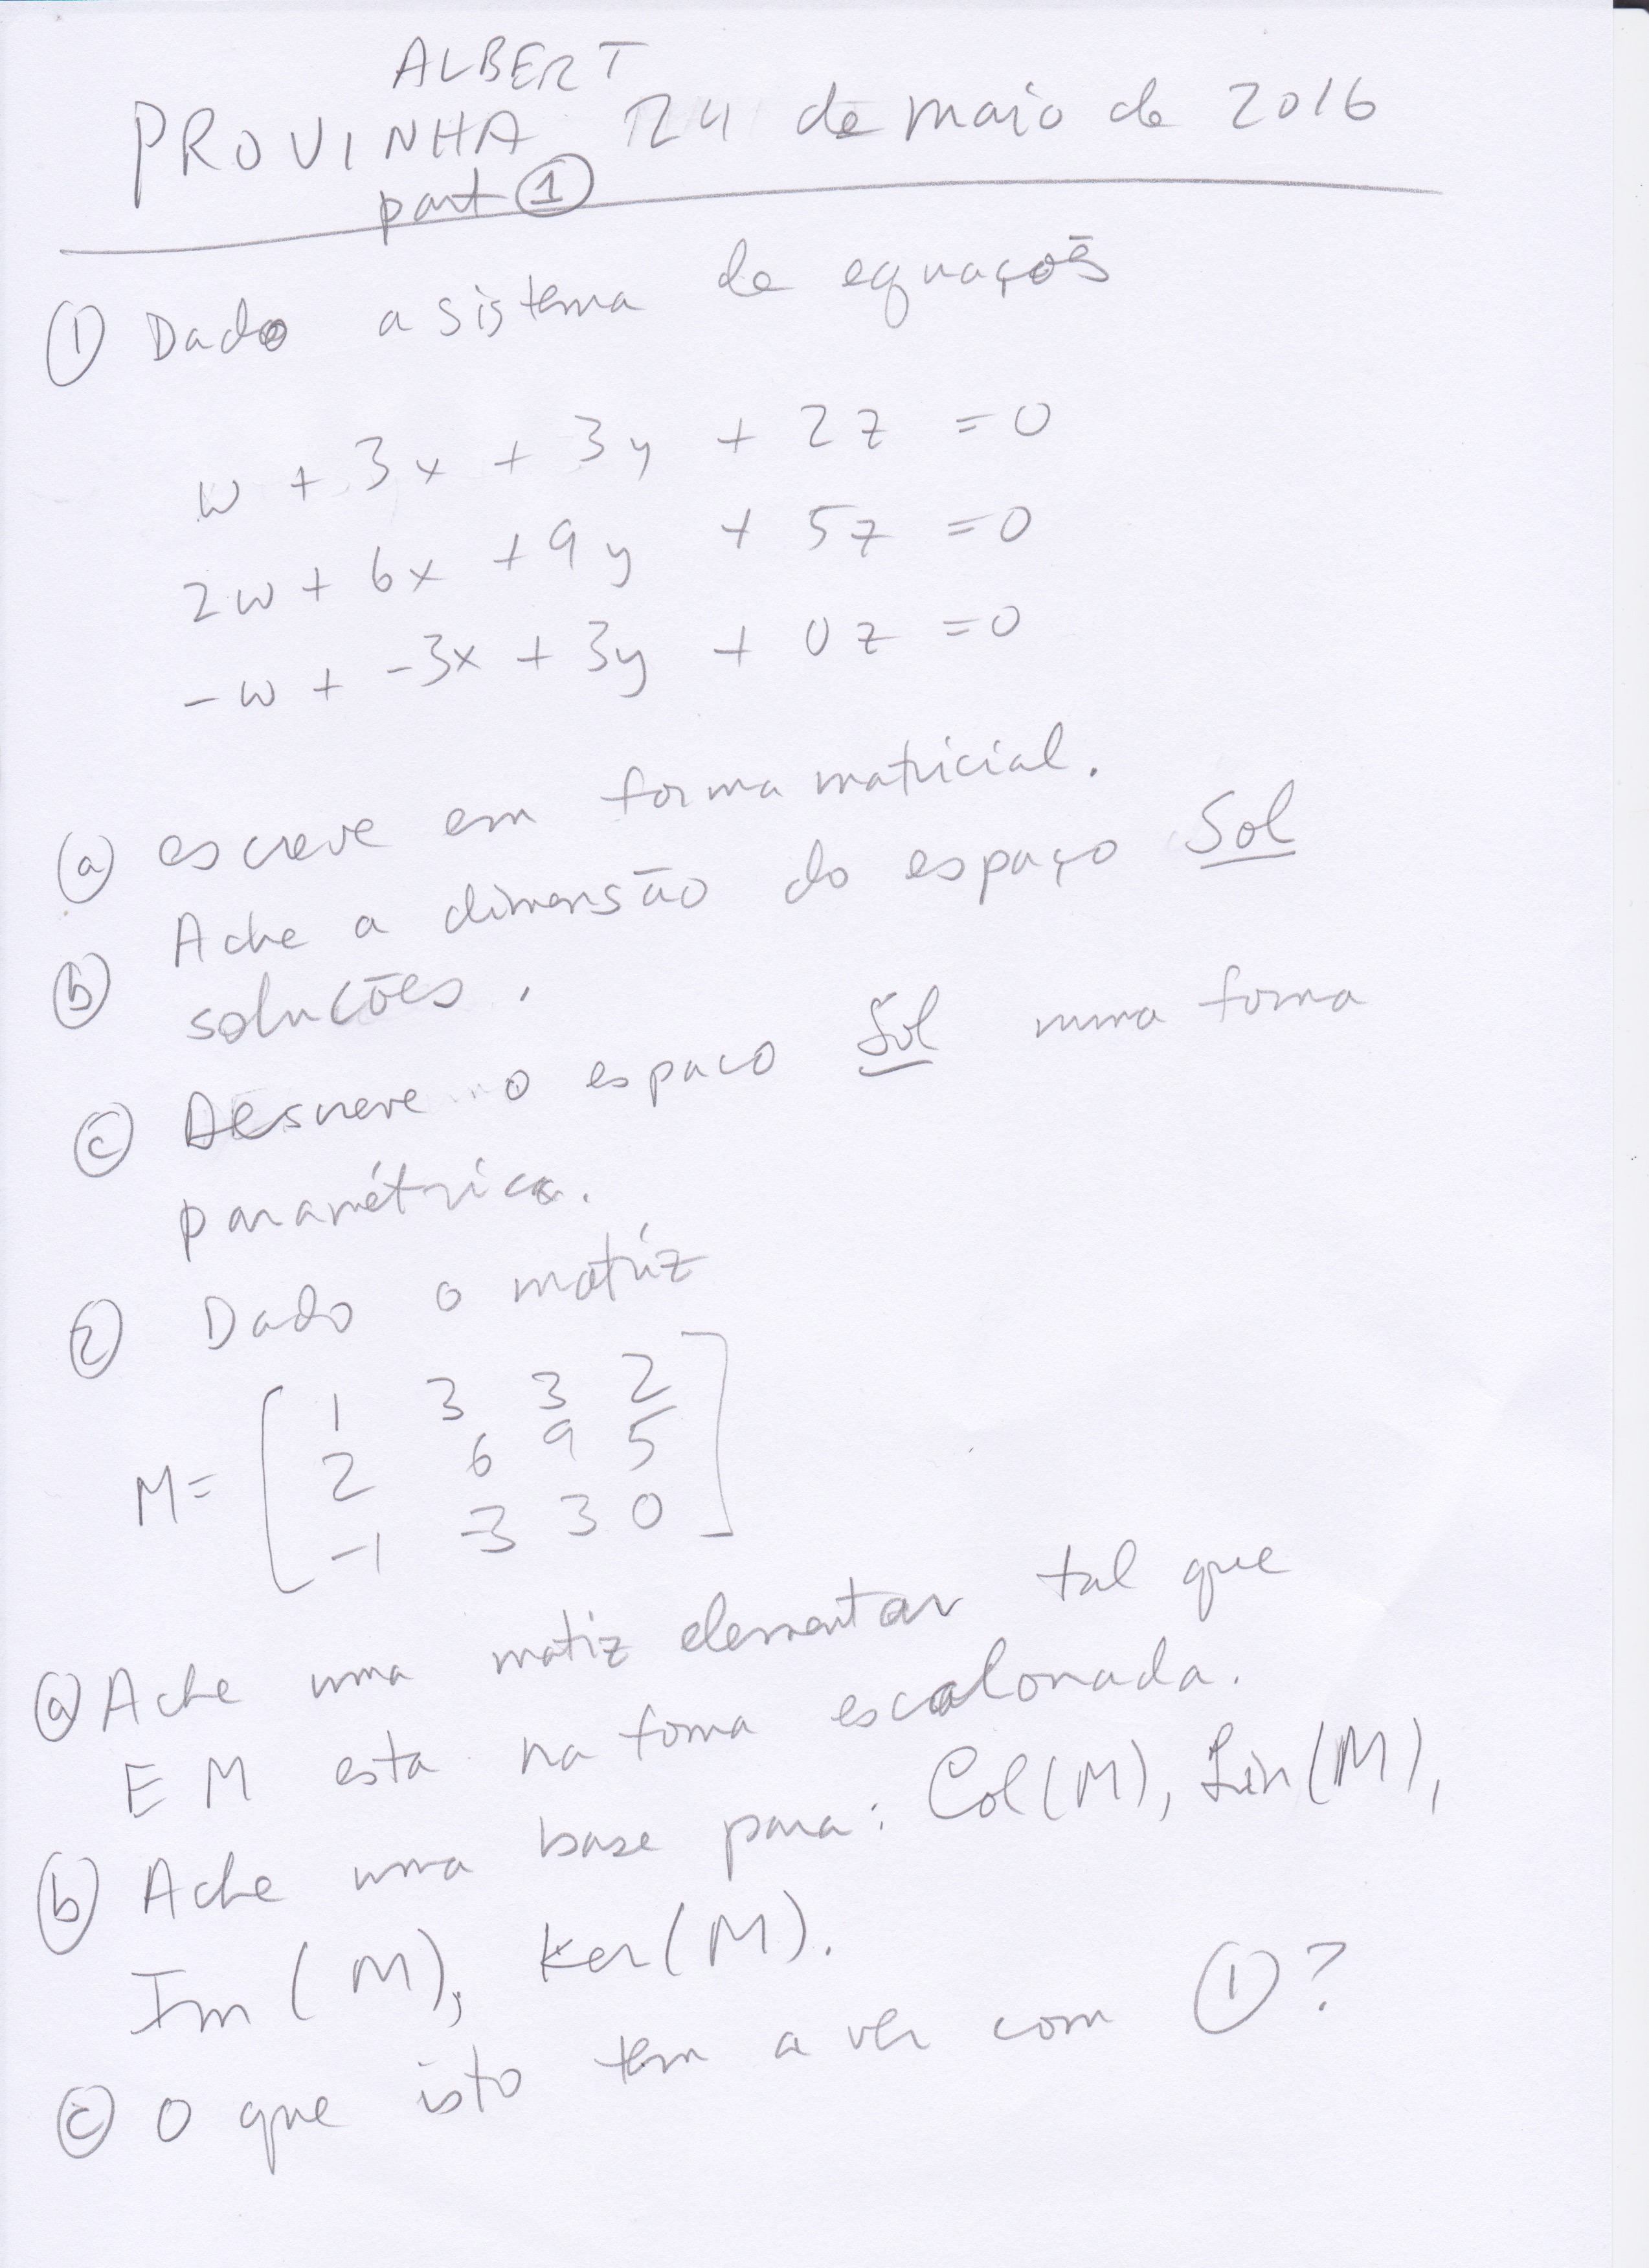 ALBERT
PROVINHA 24 de maio de 2016
part ①
① Dado a sistema de equações
w + 3x + 3y + 2z = 0
2w + 6x + 9y + 5z = 0
-w + -3x + 3y + 0z = 0
ⓐ escreve em forma matricial.
ⓑ Ache a dimensão do espaço Sol
soluções.
ⓒ Descreve o espaco Sol numa forma
paramétrica.
② Dado o matriz
1 3 3 2
2 6 9 5
M=
-1 -3 3 0
ⓐ Ache uma matiz elementar tal que
E M esta na forma escalonada.
ⓑ Ache uma base para: Col(M), Lin(M),
Im(M), Ker(M).
ⓒ O que isto tem a ver com ①?